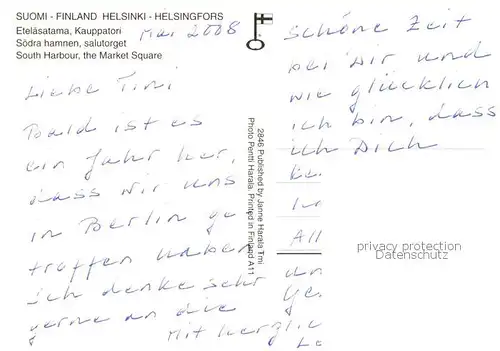 SUOMI - FINLAND HELSINKI - HELSINGFORS
Eteläsatama, Kauppatori
Södra hamnen, salutorget
South Harbour, the Market Square
Mai 2008
Liebe Timi
Bald ist es
ein Jahr her,
dass wir uns
in Berlin ge
troffen haben
ich denke sehr
gerne an die
Mit herzlic
2846 Published by Janne Harala Tmi
Photo Pentti Harala. Printed in Finland A11
schöne Zeit
bei Dir und
wie glücklich
ich bin, dass
ich Dich
ke
In
All
un
ge
privacy protection
Datenschutz